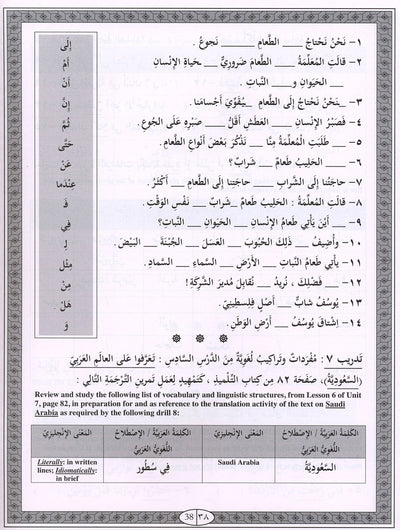 ١- نَحْنُ نَحْتاجُ ___ الطَّعامِ ___ نَجوعُ.
٢- قالَتِ المُعَلِّمَةُ ___ الطَّعامَ ضَرورِيٌّ ___ حَياةِ الإنْسانِ
___ الحَيَوانِ و ___ النَّباتِ.
٣- ___نَحْنُ نَحْتاجُ إلَى الطَّعامِ ___يُقَوِّيَ أجْسامَنا.
٤- فَصَبْرُ الإنْسانِ ___ العَطَشِ أقَلُّ ___ صَبْرِهِ عَلَى الجُوعِ.
٥- ___ طَلَبَتِ المُعَلِّمَةُ مِنّا ___ نَذْكُرَ بَعْضَ أنْواعِ الطَّعامِ.
٦- ___ الحَليبُ طَعامٌ ___ شَرابٌ؟
٧- حاجَتُنا ___ الشَّرابِ ___ حاجَتِنا إلَى الطَّعامِ ___ أكْثَرُ.
٨- قالَتِ المُعَلِّمَةُ : الحَليبُ طَعامٌ ___ شَرابٌ ___ نَفْسِ الوَقْتِ.
٩- ___ أيْنَ يَأتي طَعامُ الإنْسانِ ___ الحَيَوانِ ___ النَّباتِ؟
١٠- وأُضيفُ ___ ذَلِكَ الحُبُوبَ ___ العَسَلَ ___ الجُبْنَةَ ___ البَيْضَ.
١١- يأتي طَعامُ النَّباتِ ___ الأرْضِ ___ السَّماءِ ___ السَّمادِ.
١٢- ___ فَضْلِكَ ، نُريدُ ___ نُقابِلَ مُديرَ الشَّرِكَةِ!
١٣- يُوسُفُ شابٌّ ___ أصْلٍ فِلَسْطينِيٍّ.
١٤- اِشْتاقَ يُوسُفُ ___ أرْضِ الوَطَنِ.
إلَى
أمْ
أنْ
إنَّ
ثُمَّ
حَتَّى
عَنْ
عِنْدَما
فَـ
فِي
لِـ
مِثْل
مِنْ
هَلْ
وَ
تَدريب ٧ : مُفْرَداتٌ وتَراكيبُ لُغَوِيَّةٌ مِنَ الدَّرْسِ السَّادِسِ : تَعَرَّفوا عَلى العالَمِ العَرَبيِّ
(السَّعُودِيَّةُ)، صَفْحَة ٨٢ مِن كِتابِ التِّلْميذِ، كَتَمْهيدٍ لِعَمَلِ تَمرينِ التَّرْجَمَةِ التَّالي :
Review and study the following list of vocabulary and linguistic structures, from Lesson 6 of Unit
7, page 82, in preparation for and as reference to the translation activity of the text on Saudi
Arabia as required by the following drill 8:
الكَلِمَةُ العَرَبِيَّةُ / الإصْطِلاحُ اللُّغَوِيُّ العَرَبِيُّ
المَعْنَى الإنْجليزِيُّ
الكَلِمَةُ العَرَبِيَّةُ / الإصْطِلاحُ اللُّغَوِيُّ العَرَبِيُّ
المَعْنَى الإنْجليزِيُّ
السَّعُودِيَّةُ
Saudi Arabia
فِي سُطُور
Literally: in written
lines; Idiomatically:
in brief
38 ٣٨